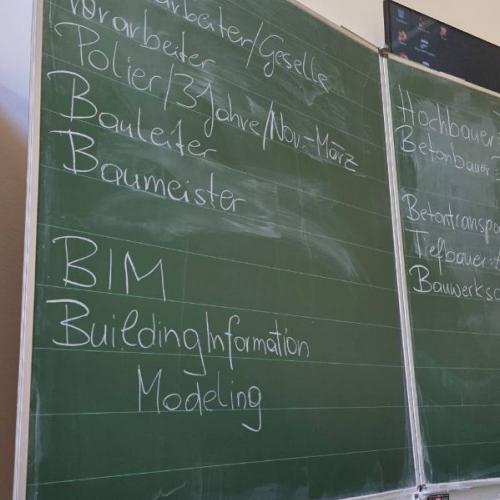 arbeiter/Geselle
Vorarbeiter
Polier/3 Jahre/Nov.-März
Bauleiter
Baumeister
BIM
Building Information
Modeling
Hochbauer
Betonbauer
Betontranspo
Tiefbauer
Bauwerks